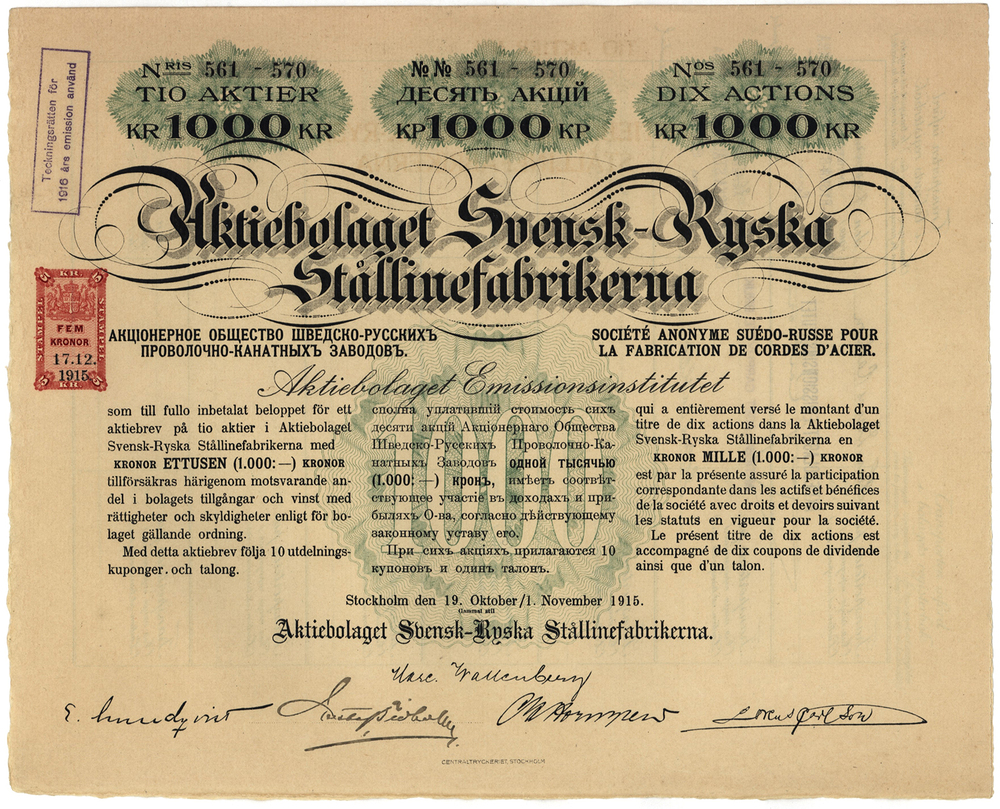 Teckningsrätten för
1916 års emission använd
NRIS 561 - 570
TIO AKTIER
KR 1000 KR
№ № 561 - 570
ДЕСЯТЬ АКЦІЙ
КР 1000 КР
NOS 561 - 570
DIX ACTIONS
KR 1000 KR
Aktiebolaget Svensk-Ryska
Stållinefabrikerna
5 KR. 5
STÄMPEL
STÄMPEL
FEM
KRONOR
17.12.
1915
5 KR. 5
АКЦІОНЕРНОЕ ОБЩЕСТВО ШВЕДСКО-РУССКИХЪ
ПРОВОЛОЧНО-КАНАТНЫХЪ ЗАВОДОВЪ.
SOCIÉTÉ ANONYME SUÉDO-RUSSE POUR
LA FABRICATION DE CORDES D'ACIER.
Aktiebolaget Emissionsinstitutet
som till fullo inbetalat beloppet för ett
aktiebrev på tio aktier i Aktiebolaget
Svensk-Ryska Stållinefabrikerna med
KRONOR ETTUSEN (1.000:—) KRONOR
tillförsäkras härigenom motsvarande an-
del i bolagets tillgångar och vinst med
rättigheter och skyldigheter enligt för bo-
laget gällande ordning.
Med detta aktiebrev följa 10 utdelnings-
kuponger. och talong.
сполна уплатившій стоимость сихъ
десяти акцій Акціонернаго Общества
Шведско-Русскихъ Проволочно-Ка-
натныхъ Заводовъ одной тысячью
(1.000:—) кронъ, имѣетъ соотвѣт-
ствующее участіе въ доходахъ и при-
быляхъ О-ва, согласно дѣйствующему
законному уставу его.
При сихъ акціяхъ прилагаются 10
купоновъ и одинъ талонъ.
1000
qui a entièrement versé le montant d'un
titre de dix actions dans la Aktiebolaget
Svensk-Ryska Stållinefabrikerna en
KRONOR MILLE (1.000:—) KRONOR
est par la présente assuré la participation
correspondante dans les actifs et bénéfices
de la société avec droits et devoirs suivant
les statuts en vigueur pour la société.
Le présent titre de dix actions est
accompagné de dix coupons de dividende
ainsi que d'un talon.
Stockholm den 19. Oktober/1. November 1915.
(Gammal stil)
Aktiebolaget Svensk-Ryska Stållinefabrikerna.
Marc. Wallenberg
E. Lundqvist
CENTRALTRYCKERIET, STOCKHOLM